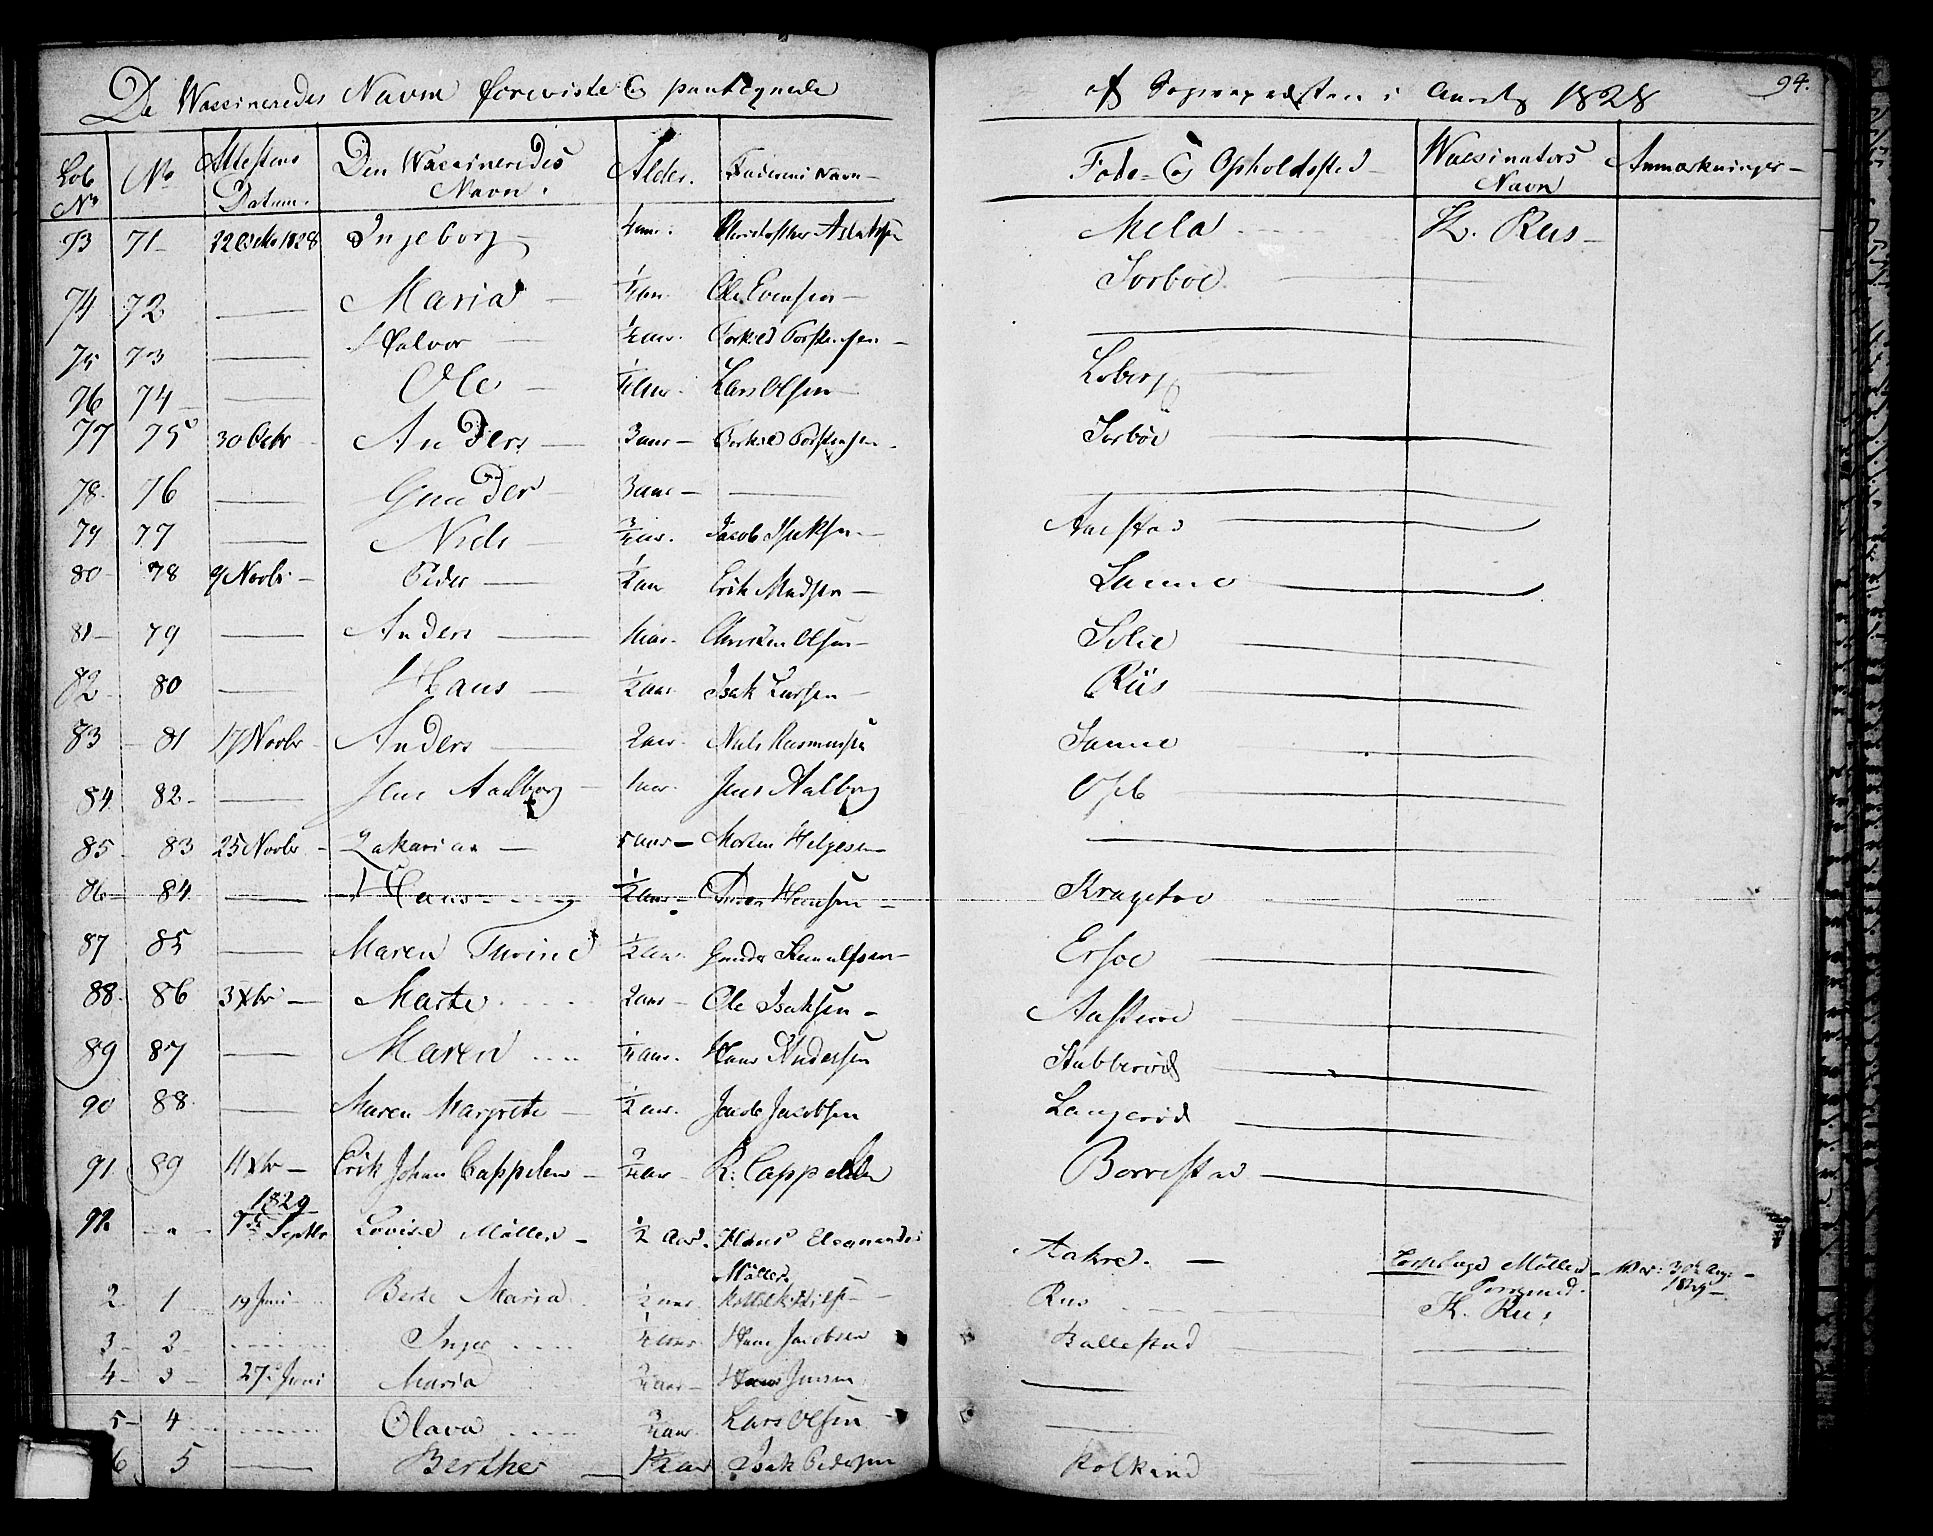 De Waccineredes Navne foreviste og paategnede af Sognepræsten i Aaret 1828 94.
Lob No No Attestens Datum. Den Waccineredes Navn. Alder. Faderens Navn Føde- og Opholdssted Waccinators Navn Anmærkninger
73 71 22 Octbr 1828 Ingeborg 4 aar. Christopher Mela K. Rus
74 72 — Maria 1/4 aar. Ole Evensen Sorboe
75 73 — Halvor 1/2 aar. Torkild Torstensen —
76 74 — Ole 1/4 aar. Lars Olsen Loberg
77 75 30 Octr Anders 3 aar Torkild Torstensen Sorböe
78. 76 — Gunder 3 aar — —
79 77 — Niels 3/4 aar. Jacob Isaksen Aaestad
80 78 9 Novbr Peder 1/2 aar Erik Madsen Sanne
81 79 — Anders 1 aar. Christen Olsen Solie
82 80 — Hans 1/2 aar Isak Larsen Riis
83 81 17 Novbr Anders 2 aar. Niels Rasmussen Sanne
84 82 — Jens Aalborg 1 aar. Jens Aalborg
85 83 25 Novbr Zakarias 5 aar Morten Helgesen —
86 84 — Hans 1/2 aar Hansen Kragetoe
87 85 — Maren Turine 1/2 aar Gunder Ersoe
88. 86 3 Xbr Marte 2 aar Ole Isaksen
89 87 — Maren 1/4 aar. Hans Andersen Stubberöd
90 88 — Maren Margrete 1/2 aar. Jacob Jacobsen Langeröd
91. 89 11 Xbr Erik Johan Cappelen 3/4 aar R. Cappelen Borrestad
92. 1829 7de Septbr Lovise Möller 1/2 Aar. Hans Möller Aakre. Möller Porsgrund. 30te Aug: 1829
2 1 19 Juni Berte Maria 1/2 aar Rus K. Rus
3 2 Inger 1/4 aar Hans Jacobsen Ballestad —
4 3 27. Juni Maria 3/4 aar Hans Jensen — —
5 4 Olava 3/4 aar Lars Olsen — —
6 5 — Berthe 1 1/2 aar Isak Pedersen Kolkind —